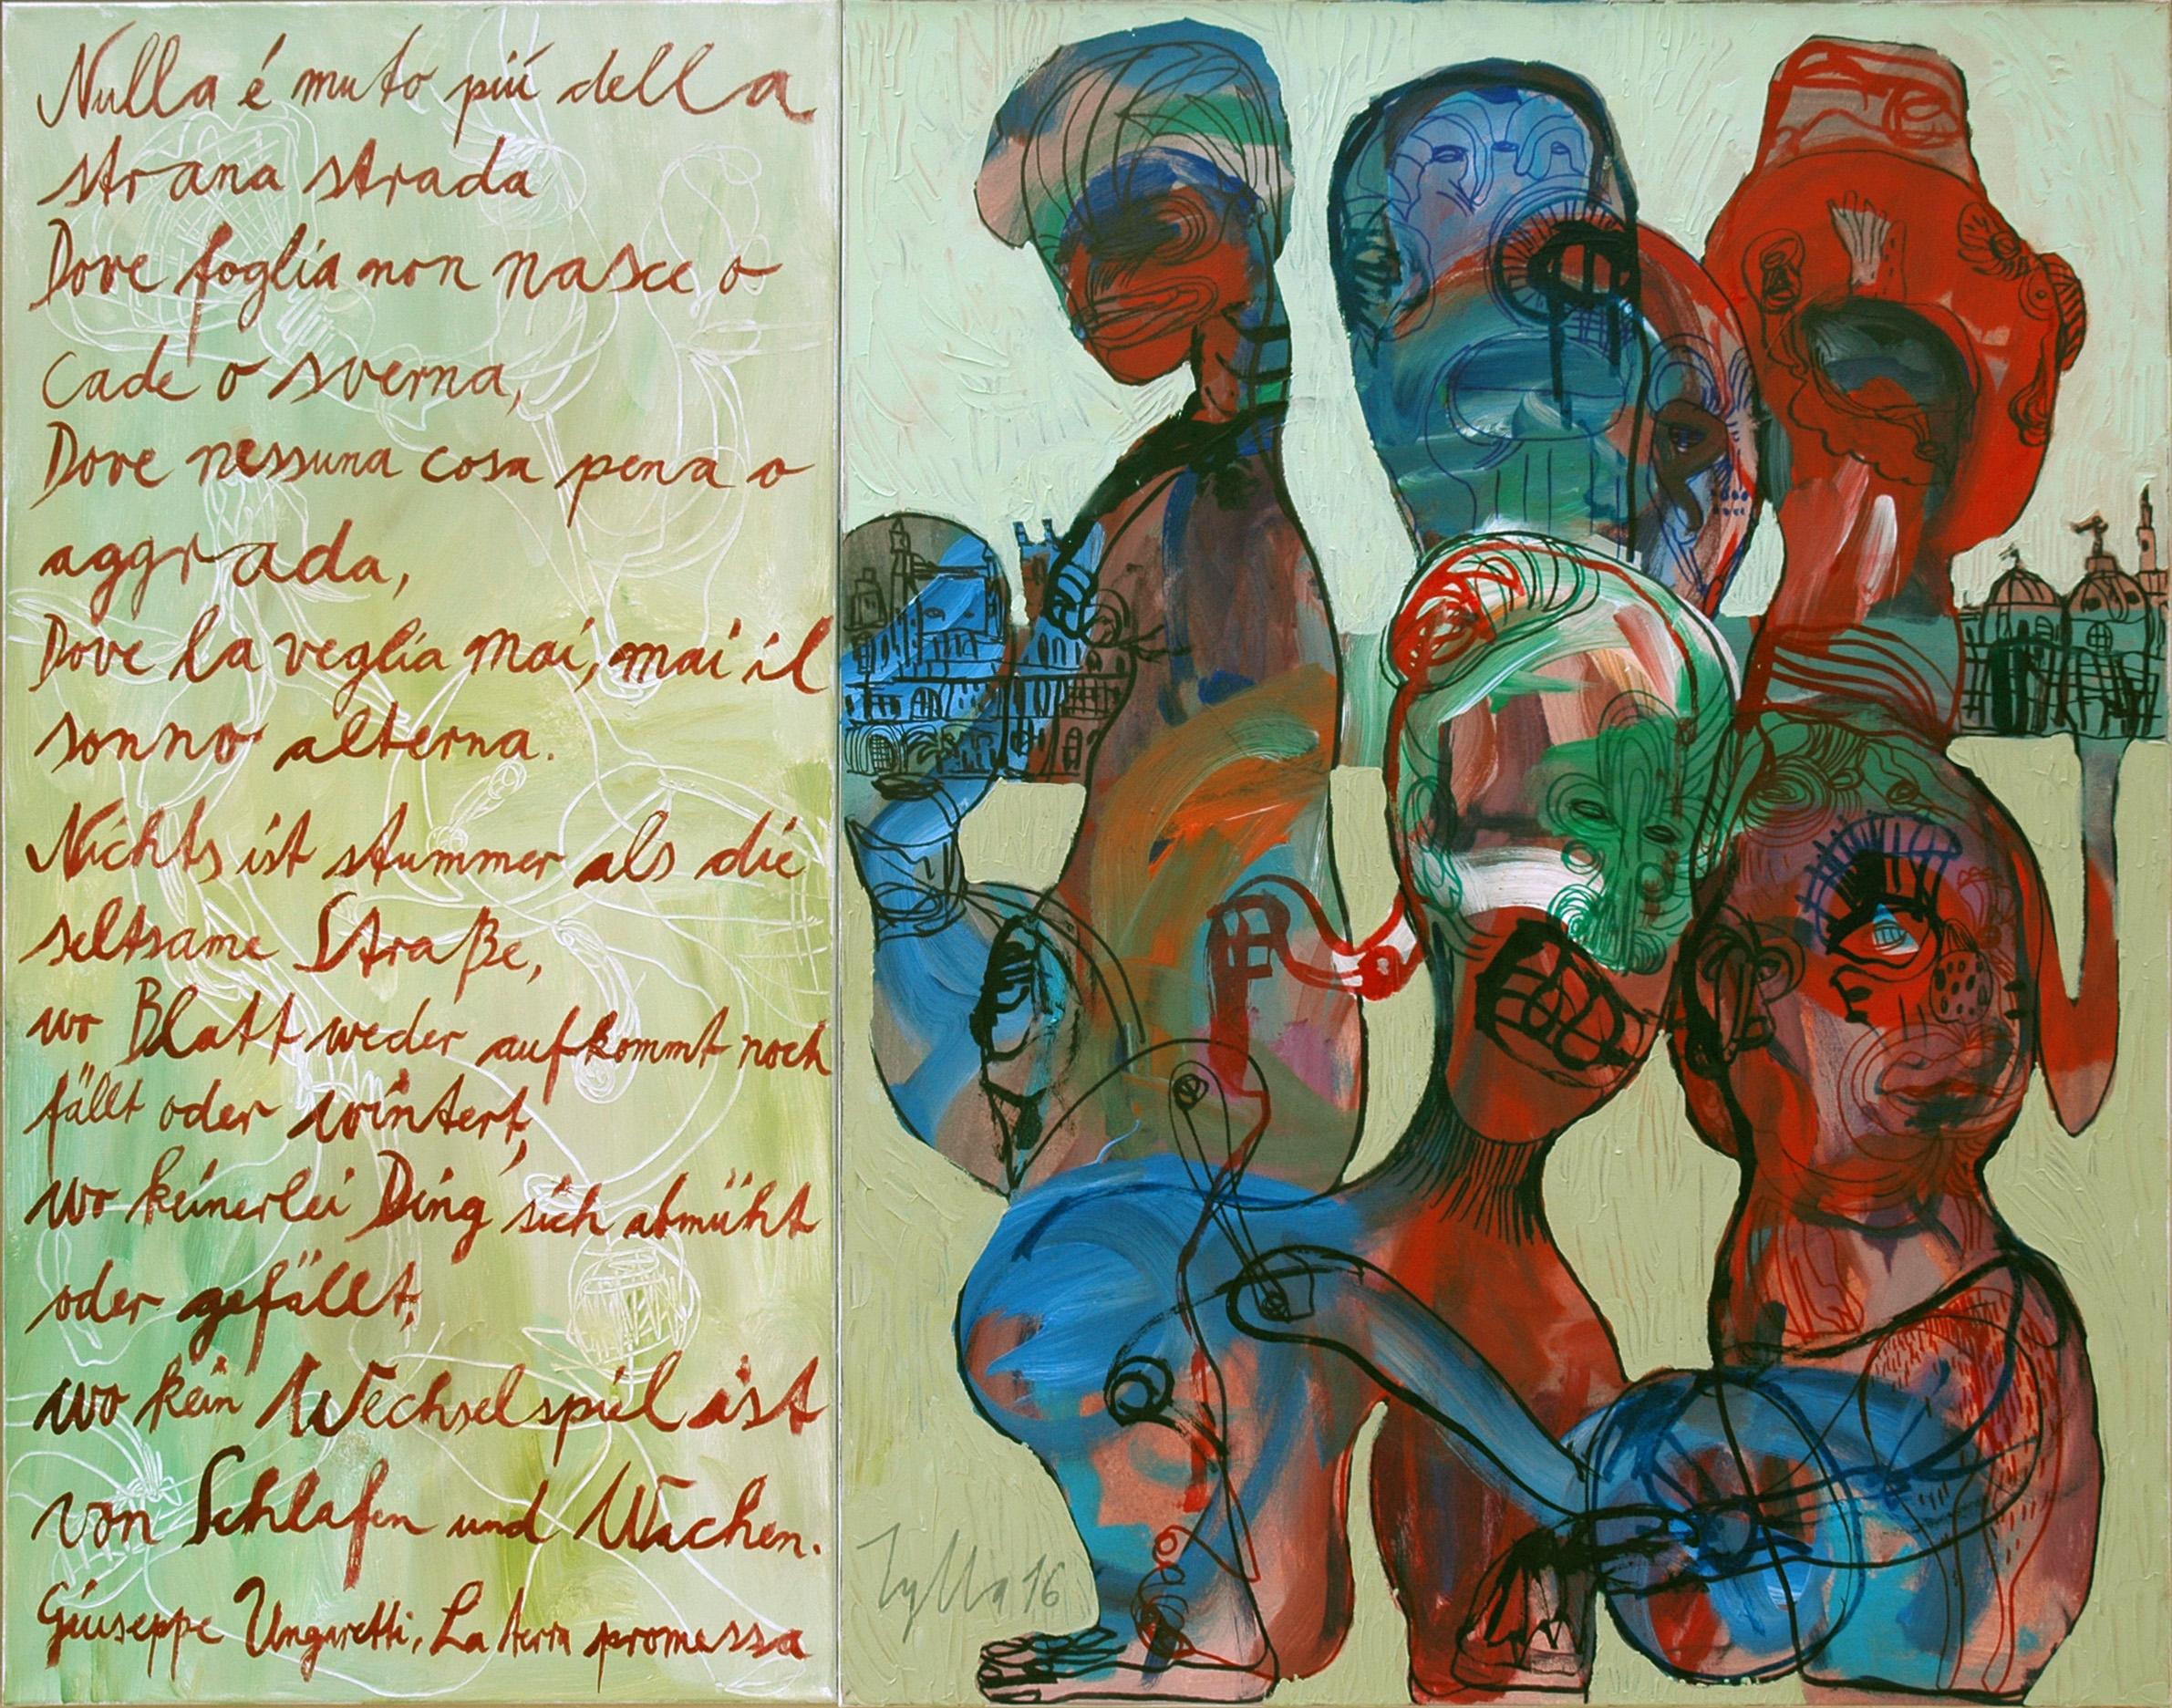 Nulla é muto più della
strana strada
Dove foglia non nasce o
cade o sverna,
Dove nessuna cosa pena o
aggrada,
Dove la veglia mai, mai il
sonno alterna.
Nichts ist stummer als die
seltsame Straße,
wo Blatt weder aufkommt noch
fällt oder wintert,
wo keinerlei Ding sich abmüht
oder gefällt,
wo kein Wechselspiel ist
von Schlafen und Wachen.
Giuseppe Ungaretti, La terra promessa
Zylla 16